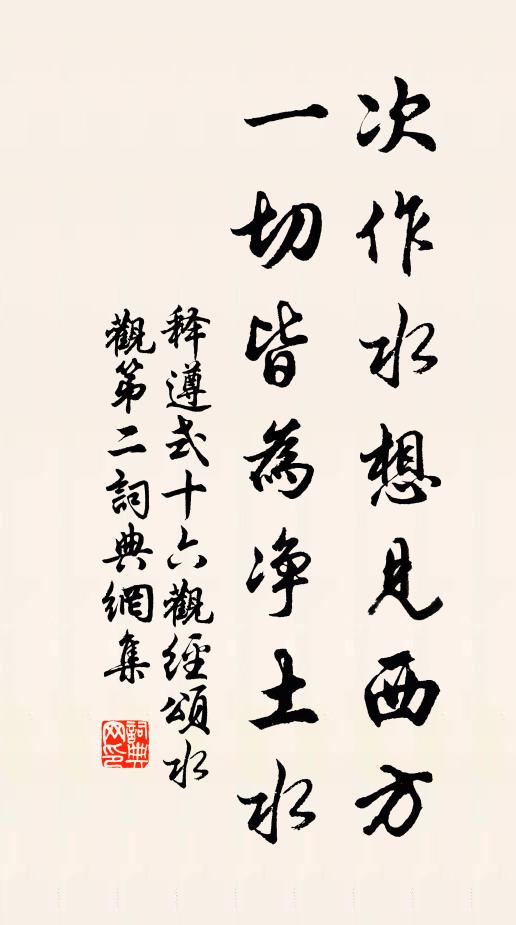 次作水想見西方
一切皆為净土水
释遵式十六觀經頌水
觀第二詞典網集
詞典網印